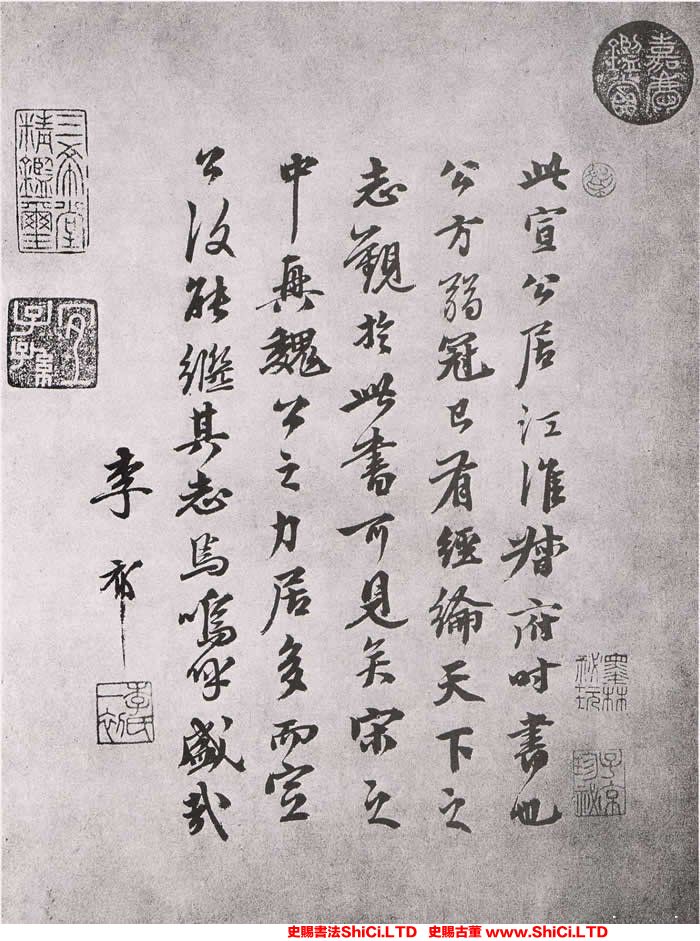 嘉慶鑑賞
此宣公居江淮督府時書也
公方弱冠已有經綸天下之
志觀於此書可見矣宋之
中興魏公之力居多而宣
公能繼其志焉嗚呼盛哉
李祁
李氏一初
墨林秘玩
子京珍秘
三希堂精鑑璽
宜子孫
史賜書法ShiCi.LTD 史賜古董 www.ShiCi.LTD